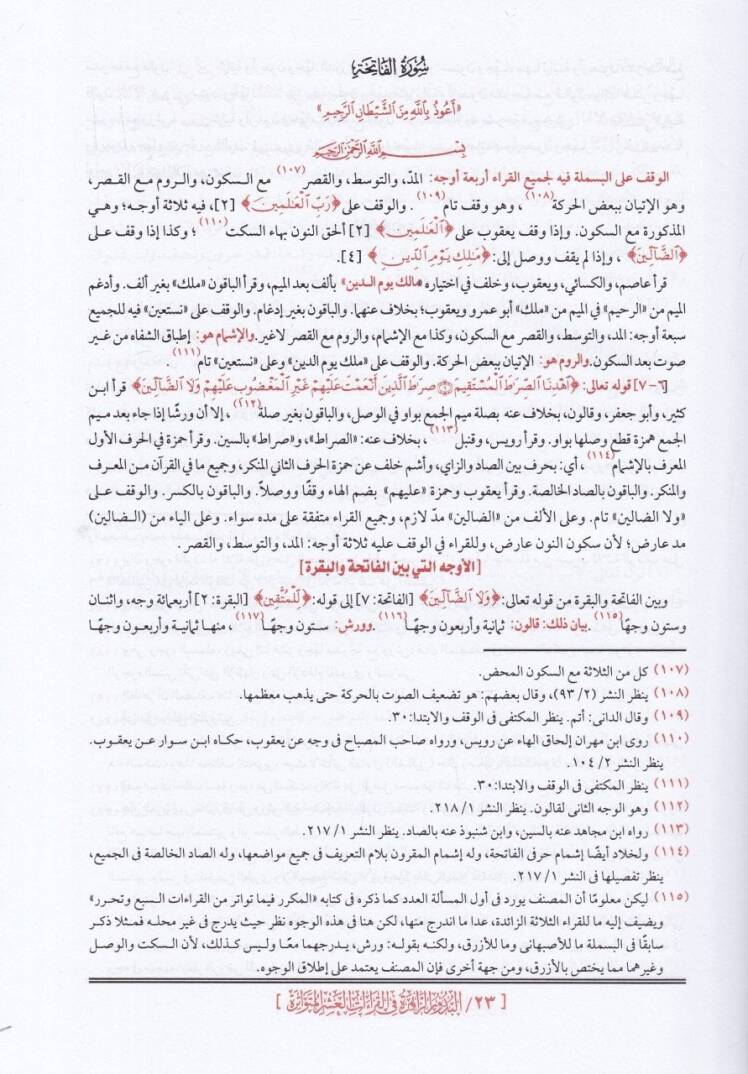 سُورَةُ الفَاتِحَةِ
«أَعُوذُ بِاللَّهِ مِنَ الشَّيْطَانِ الرَّجِيمِ»
بِسْمِ اللَّهِ الرَّحْمَنِ الرَّحِيمِ
الوقف على البسملة فيه لجميع القراء أربعة أوجه: المدّ، والتوسط، والقصر(١٠٧) مع السكون، والروم مع القصر،
وهو الإتيان ببعض الحركة(١٠٨)، وهو وقف تام(١٠٩). والوقف على ﴿رَبِّ ٱلۡعَٰلَمِينَ﴾ [٢]، فيه ثلاثة أوجه؛ وهي
المذكورة مع السكون. وإذا وقف يعقوب على ﴿ٱلۡعَٰلَمِينَ﴾ [٢] ألحق النون بهاء السكت(١١٠)؛ وكذا إذا وقف على
﴿ٱلضَّآلِّينَ﴾، وإذا لم يقف ووصل إلى: ﴿مَٰلِكِ يَوۡمِ ٱلدِّينِ﴾ [٤].
قرأ عاصم، والكسائي، ويعقوب، وخلف في اختياره «مالك يوم الدين» بألف بعد الميم، وقرأ الباقون «ملك» بغير ألف. وأدغم
الميم من «الرحيم» في الميم من «ملك» أبو عمرو ويعقوب؛ بخلاف عنهما. والباقون بغير إدغام. والوقف على «نستعين» فيه للجميع
سبعة أوجه: المد، والتوسط، والقصر مع السكون، وكذا مع الإشمام، والروم مع القصر لاغير. والإشمام هو: إطباق الشفاه من غير
صوت بعد السكون. والروم هو: الإتيان ببعض الحركة. والوقف على «ملك يوم الدين» وعلى «نستعين» تام(١١١).
[٦-٧] قوله تعالى: ﴿ٱهۡدِنَا ٱلصِّرَٰطَ ٱلۡمُسۡتَقِيمَ ۝ صِرَٰطَ ٱلَّذِينَ أَنۡعَمۡتَ عَلَيۡهِمۡ غَيۡرِ ٱلۡمَغۡضُوبِ عَلَيۡهِمۡ وَلَا ٱلضَّآلِّينَ﴾ قرأ ابن
كثير، وأبو جعفر، وقالون، بخلاف عنه بصلة ميم الجمع بواو في الوصل، والباقون بغير صلة(١١٢)، إلا أن ورشًا إذا جاء بعد ميم
الجمع همزة قطع وصلها بواو. وقرأ رويس، وقنبل(١١٣)، بخلاف عنه: «الصراط»، و«صراط» بالسين. وقرأ حمزة في الحرف الأول
المعرف بالإشمام(١١٤)، أي: بحرف بين الصاد والزاي، وأشم خلف عن حمزة الحرف الثاني المنكر، وجميع ما في القرآن من المعرف
والمنكر. والباقون بالصاد الخالصة. وقرأ يعقوب وحمزة «عليهم» بضم الهاء وقفًا ووصلاً. والباقون بالكسر. والوقف على
«ولا الضالين» تام. وعلى الألف من «الضالين» مدّ لازم، وجميع القراء متفقة على مده سواء. وعلى الياء من (الضالين)
مد عارض؛ لأن سكون النون عارض، وللقراء في الوقف عليه ثلاثة أوجه: المد، والتوسط، والقصر.
[الأوجه التي بين الفاتحة والبقرة]
وبين الفاتحة والبقرة من قوله تعالى: ﴿وَلَا ٱلضَّآلِّينَ﴾ [الفاتحة: ٧] إلى قوله: ﴿لِّلۡمُتَّقِينَ﴾ [البقرة: ٢] أربعمائة وجه، واثنان
وستون وجهًا(١١٥). بيان ذلك: قالون: ثمانية وأربعون وجهًا(١١٦). وورش: ستون وجهًا(١١٧)، منها ثمانية وأربعون وجهًا
(١٠٧) كل من الثلاثة مع السكون المحض.
(١٠٨) ينظر النشر (٢/ ٩٣)، وقال بعضهم: هو تضعيف الصوت بالحركة حتى يذهب معظمها.
(١٠٩) وقال الدانى: أتم. ينظر المكتفى فى الوقف والابتدا: ٣٠.
(١١٠) روى ابن مهران إلحاق الهاء عن رويس، ورواه صاحب المصباح فى وجه عن يعقوب، حكاه ابن سوار عن يعقوب.
ينظر النشر ٢/ ١٠٤.
(١١١) ينظر المكتفى فى الوقف والابتدا: ٣٠.
(١١٢) وهو الوجه الثانى لقالون. ينظر النشر ١/ ٢١٨.
(١١٣) رواه ابن مجاهد عنه بالسين، وابن شنبوذ عنه بالصاد. ينظر النشر ١/ ٢١٧.
(١١٤) ولخلاد أيضًا إشمام حرفى الفاتحة، وله إشمام المقرون بلام التعريف فى جميع مواضعها، وله الصاد الخالصة فى الجميع،
ينظر تفصيلها فى النشر ١/ ٢١٧.
(١١٥) ليكن معلومًا أن المصنف يورد فى أول المسألة العدد كما ذكره فى كتابه «المكرر فيما تواتر من القراءات السبع وتحرر»
ويضيف إليه ما للقراء الثلاثة الزائدة، عدا ما اندرج منها، لكن هنا فى هذه الوجوه نظر حيث يدرج فى غير محله فمثلا ذكر
سابقًا فى البسملة ما للأصبهانى وما للأزرق، ولكنه بقوله: ورش، يدرجهما معًا وليس كذلك، لأن السكت والوصل
وغيرهما مما يختص بالأزرق، ومن جهة أخرى فإن المصنف يعتمد على إطلاق الوجوه.
[ ٢٣/ البدور الزاهرة في القراءات العشر المتواترة ]